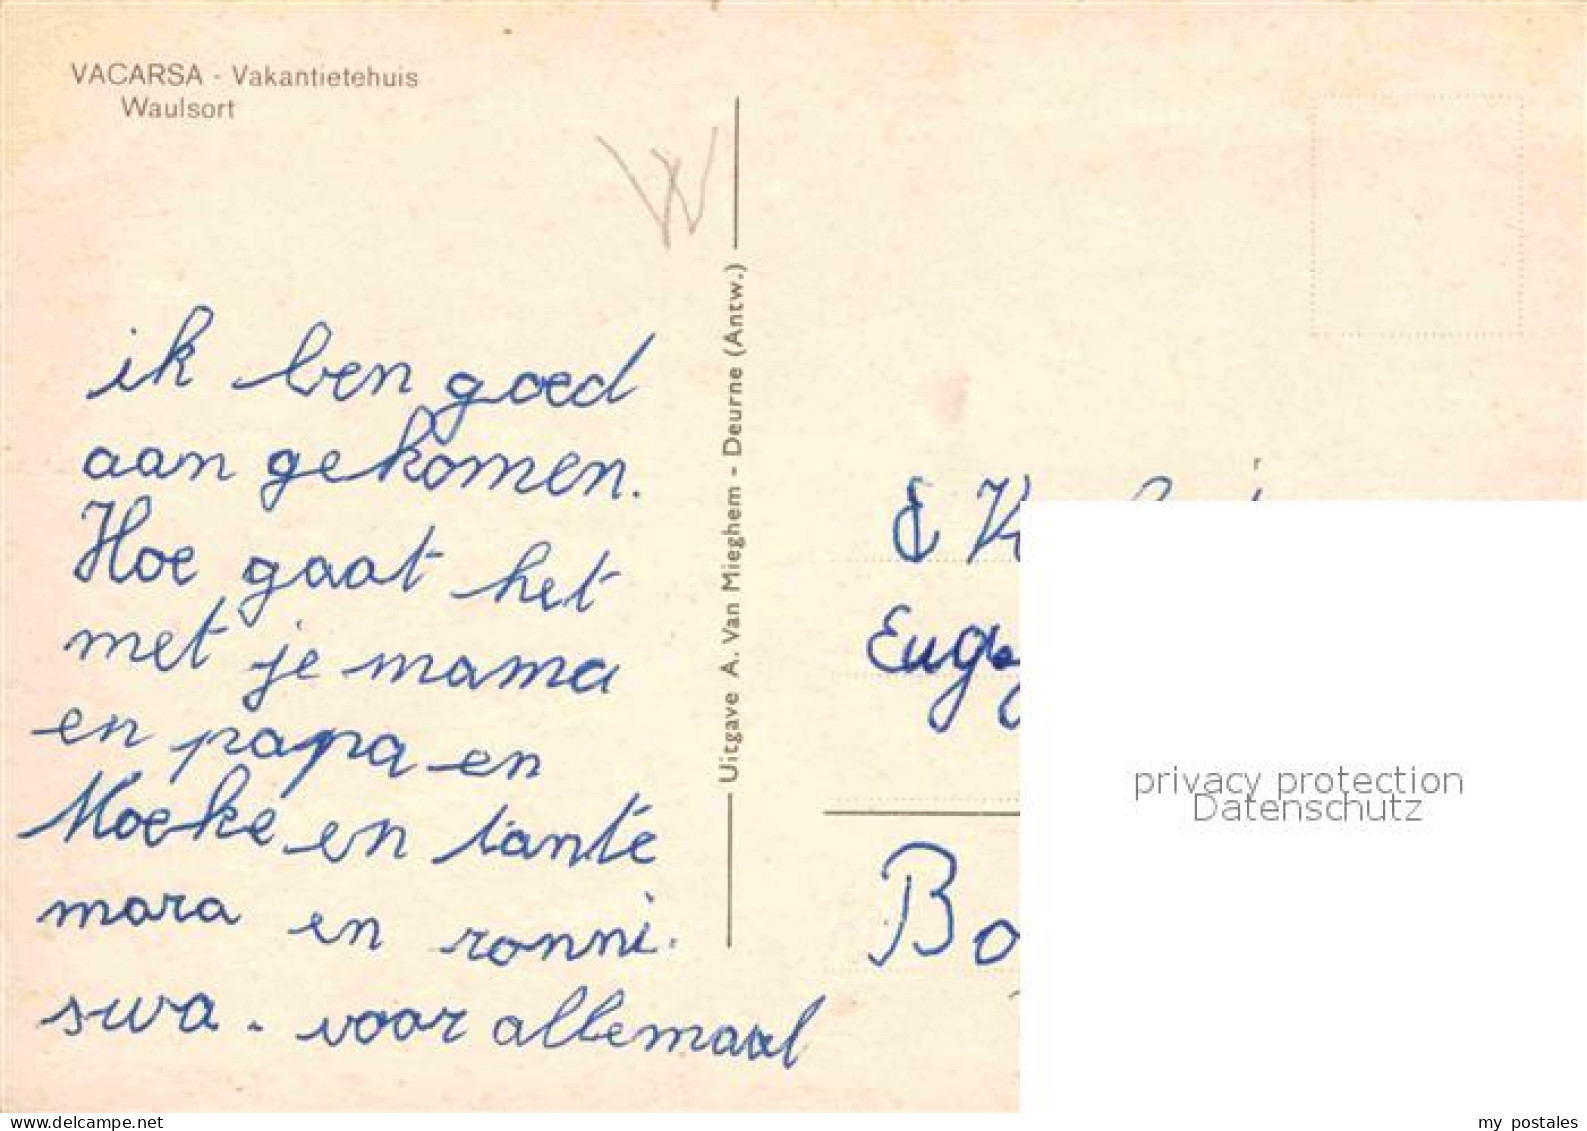 VACARSA - Vakantietehuis
Waulsort
W
ik ben goed
aan gekomen.
Hoe gaat het
met je mama
en papa en
Moeke en tante
mara en ronni.
swa. voor allemaal
Uitgave A. Van Mieghem - Deurne (Antw.)
E K
Eug
Bo
privacy protection
Datenschutz
www.delcampe.net
my_postales